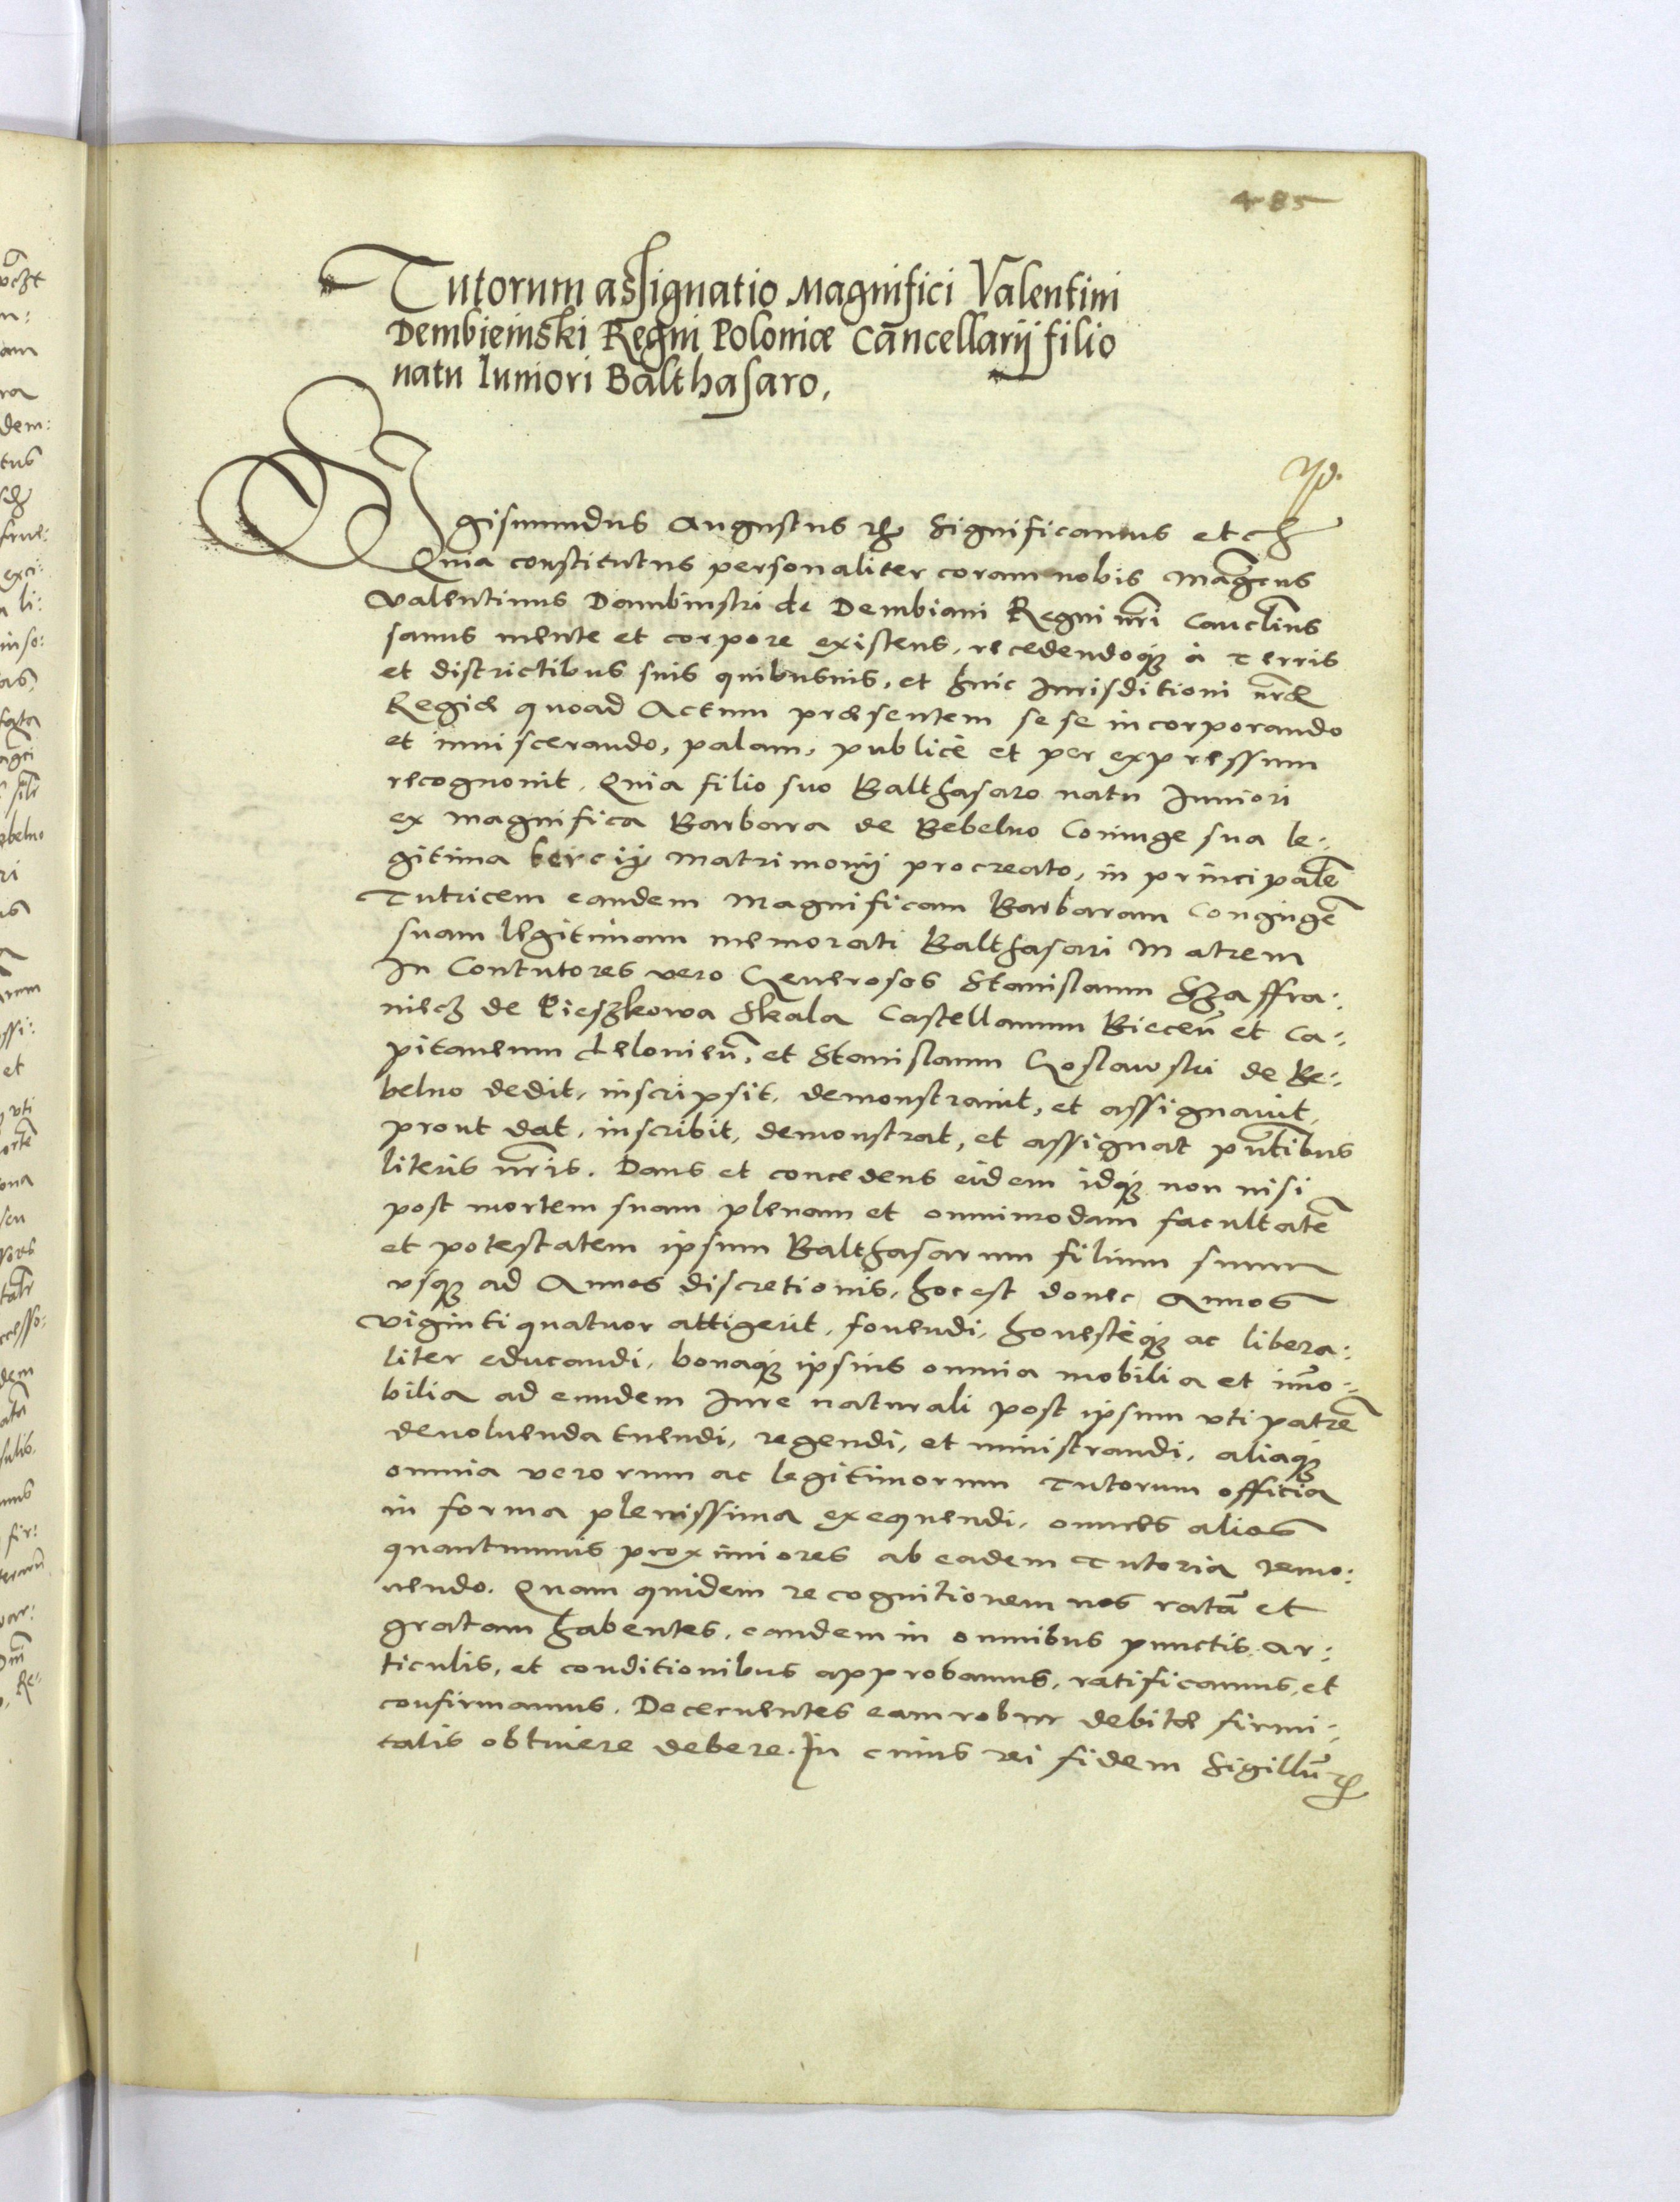 485
Tutorum assignatio Magnifici Valentini
Dembieinski Regni Poloniæ Cancellarij filio
natu Iuniori Balthasaro,
Sigismundus Augustus Significamus etc
Quia constitutus personaliter coram nobis Magcus
Valentinus Dambinski de Dembiani Regni nri Canclius
sanus mente et corpore existens, recedendoq; à Terris
et districtibus suis quibusuis, et huic Iurisditioni nræ
Regiæ quoad Actum præsentem se se incorporando
et inuiscerando, palam, publicè et per expressum
recognouit. Quia filio suo Balthasaro natu Iuniori
ex magnifica Barbara de Bebelno Coniuge sua le:
gitima tercij Matrimonij procreato, in principale
Tutricem eandem Magnificam Barbaram Congiuge
suam legitimam memorati Balthasari Matrem
In Contutores vero Generosos Stanislaum Szaffra:
niecz de Pieszkowa Skala Castellanum Biecen et Ca:
pitaneum Lelonien, et Stanislaum Goslawski de Be:
belno dedit, inscripsit, demonstrauit, et assignauit,
prout dat, inscribit, demonstrat, et assignat pntibus
literis nris. Dans et concedens eidem idq; non nisi
post mortem suam plenam et omnimodam facultate
et potestatem ipsum Balthasarum filium suum
vsq; ad Annos discretionis, hoc est donec Annos
viginti quatuor attigerit, fouendi, honestèq; ac libera:
liter educandi, bonaq; ipsius omnia mobilia et imo:
bilia ad eundem Iure naturali post ipsum vti patre
deuoluenda tuendi, regendi, et ministrandi, aliaq;
omnia verorum ac legitimorum Tutorum officia
in forma plenissima exequendi, omnes alios
quantumuis proximiores ab eadem Tutoria remo:
uendo. Quam quidem recognitionem nos ratā et
gratam habentes, eandem in omnibus punctis, ar:
ticulis, et conditionibus approbamus, ratificamus, et
confirmamus. Decernentes eam robur debitæ firmi:
tatis obtinere debere. In cuius rei fidem Sigillū